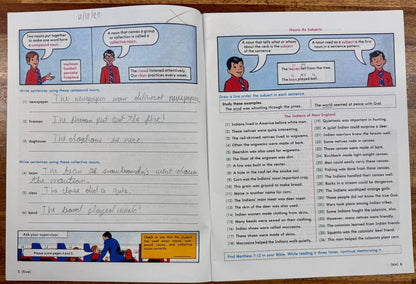 Two nouns put together
to make one word form
a compound noun.
A noun that names a group
or collection is called a
collective noun.
mailman
football
pancake
fireplace
The crowd listened attentively.
Our choir practices every week.
Write sentences using these compound nouns.
(1) newspaper
(2) fireman
The fireman put out the fire!
(3) doghouse
The doghouse is nice.
Write sentences using these collective nouns.
(4) team
the mountain.
(5) class
The class did a
(6) band
The band played music!
Ask your supervisor.
Please score pages 4 and 5.
5 (five)
Nouns As Subjects
A noun that tells what or whom
about the verb is the subject
of the sentence.
A noun used as a subject is the first
noun in a sentence pattern.
The leaves fell from the tree.
The boys played ball.
Draw a line under the subject in each sentence.
Study these examples.
The wind was whistling through the pines.
The world seemed at peace with God.
The Indians of New England
(1) Indians lived in America before white men.
(2) These natives were quite interesting.
(3) The red-skinned natives lived in wigwams.
(4) Often the wigwams were made of bark.
(5) Deerskin was also used for wigwams.
(6) The floor of the wigwam was dirt.
(7) A fire was built in the center.
(8) A hole in the roof let the smoke out.
(9) Corn was the Indians' most important crop.
(10) This grain was ground to make bread.
(11) Maize is another name for corn.
(12) The Indians' main meat was deer meat.
(13) The skin of the deer was also used.
(14) Indian women made clothing from skins.
(15) Many beads were sewed on their clothing.
(16) Indian shoes were called moccasins.
(17) These shoes were made of skins.
(18) Moccasins helped the Indians walk quietly.
(19) Quietness was important in hunting.
(20) A quiet Indian could surprise a deer.
(21) Indian warriors knew the forests well.
(22) Some natives rode in canoes.
(23) These canoes were made of bark.
(24) Birchbark made light-weight canoes.
(25) Men could easily carry these canoes.
(26) Fishing was done from these canoes.
(27) The Indians handled their canoes well.
(28) Rackets in a stream could be dangerous.
(29) The Indians worshiped strange gods.
(30) These people did not know the true God.
(31) Wars took place among Indian tribes.
(32) Some Indians fought the colonists, also.
(33) However, many natives were friendly.
(34) The colonists learned from Indian friends.
(35) Squanto was the colonists' best friend.
(36) This man helped the colonists plant corn.
Find Matthew 7:12 in your Bible. While reading it three times, continue memorizing it.
(six) 6